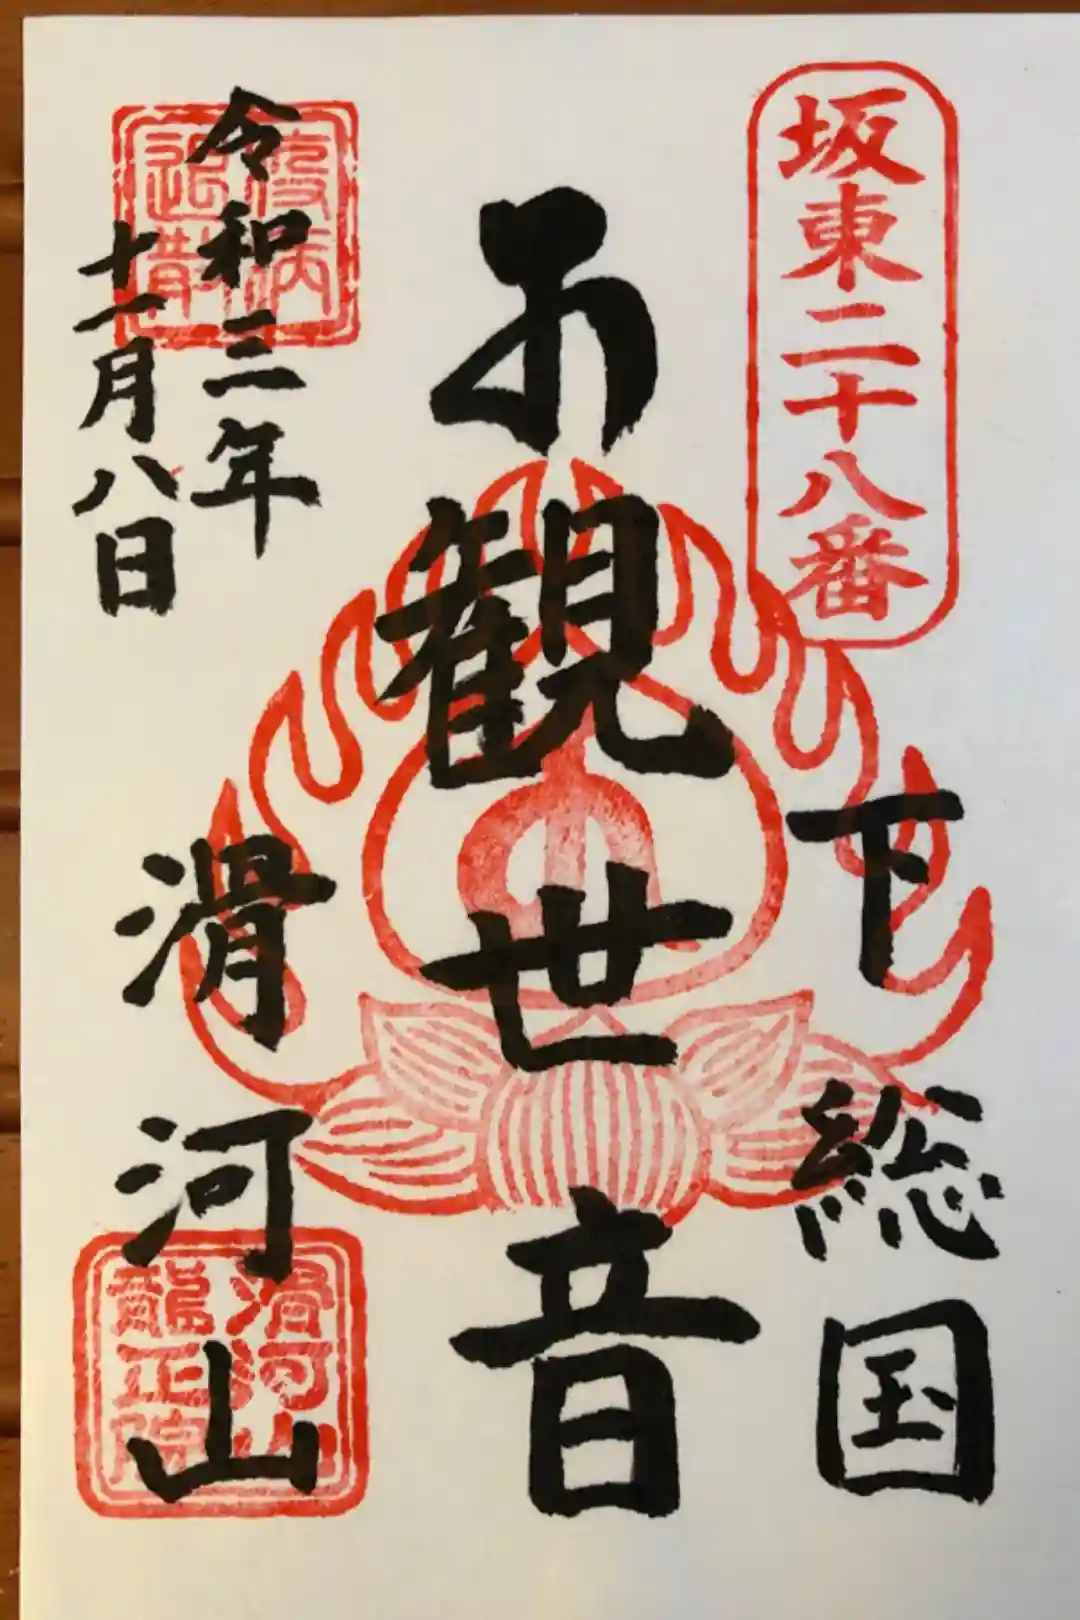 坂東二十八番
下総国
観世音
令和二年
十一月八日
疫病退散
滑河山
滑河山
龍正院